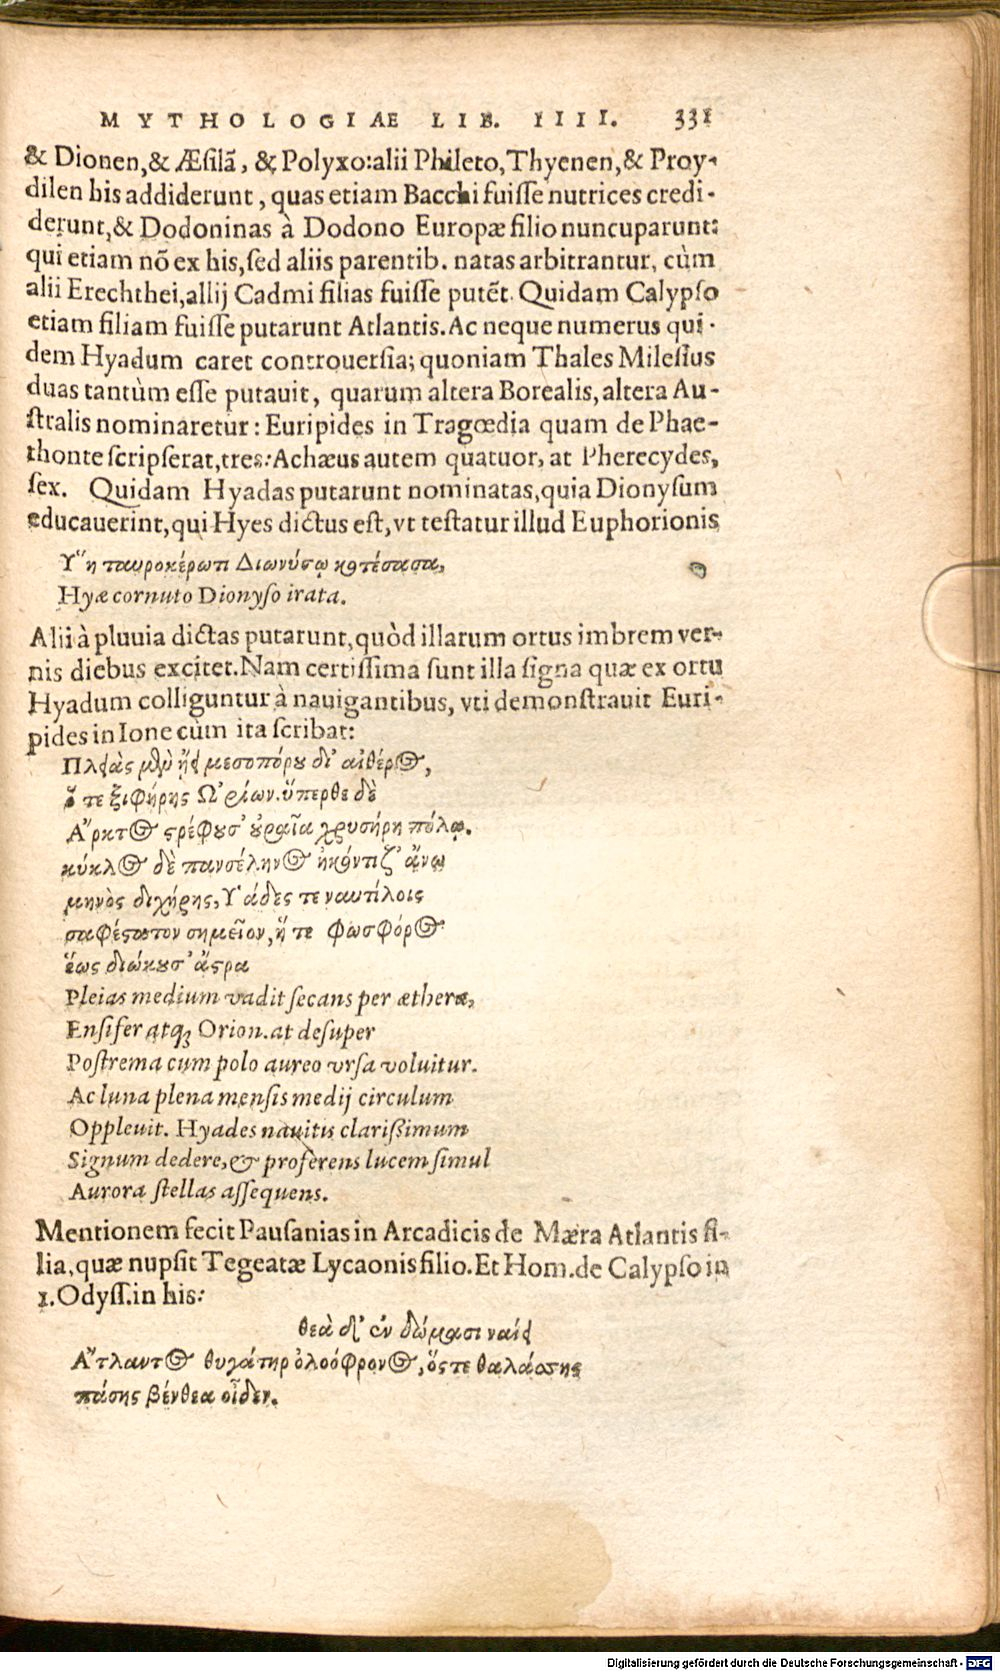 MYTHOLOGIÆ LIB. IIII. 331
& Dionen,& Æsilā, & Polyxo:alii Phileto,Thyenen,& Proy-
dilen his addiderunt, quas etiam Bacchi fuisse nutrices credi-
derunt,& Dodoninas à Dodono Europæ filio nuncuparunt:
qui etiam nō ex his,sed aliis parentib. natas arbitrantur, cùm
alii Erechthei,allij Cadmi filias fuisse putēt. Quidam Calypso
etiam filiam fuisse putarunt Atlantis. Ac neque numerus qui-
dem Hyadum caret controuersia; quoniam Thales Milesius
duas tantùm esse putauit, quarum altera Borealis, altera Au-
stralis nominaretur: Euripides in Tragœdia quam de Phae-
thonte scripserat,tres: Achæus autem quatuor, at Pherecydes,
sex. Quidam Hyadas putarunt nominatas,quia Dionysum
educauerint,qui Hyes dictus est,vt testatur illud Euphorionis
Υ῞η ταυροκέρωτι Διωνύσῳ κοτέσασα,
Hyæ cornuto Dionyso irata.
Alii à pluuia dictas putarunt,quòd illarum ortus imbrem ver-
nis diebus excitet. Nam certissima sunt illa signa quæ ex ortu
Hyadum colliguntur à nauigantibus, vti demonstrauit Euri-
pides in Ione cùm ita scribat:
Πλειὰς μὲν ᾔει μεσοπόρου δι' αἰθέρος,
ὅ τε ξιφήρης Ω᾿ρίων. ὕπερθε δὲ
Α῎ρκτος στρέφουσ' οὐραῖα χρυσήρη πόλῳ.
κύκλος δὲ πανσέληνος ἠκόντιζ' ἄνω
μηνὸς διχήρης, Υ῾άδες τε ναυτίλοις
σαφέστατον σημεῖον, ἥ τε φωσφόρος
ἕως διώκουσ' ἄστρα
Pleias medium vadit secans per æthera,
Ensifer atq; Orion. at desuper
Postrema cum polo aureo vrsa voluitur.
Ac luna plena mensis medij circulum
Oppleuit. Hyades nauitis clarissimum
Signum dedere,& proferens lucem simul
Aurora stellas assequens.
Mentionem fecit Pausanias in Arcadicis de Mæra Atlantis fi-
lia,quæ nupsit Tegeatæ Lycaonis filio. Et Hom.de Calypso in
1.Odyss.in his:
θεὰ δ' ἐν δώμασι ναίει
Α῎τλαντος θυγάτηρ ὀλοόφρονος, ὅστε θαλάσσης
πάσης βένθεα οἶδεν.
Digitalisierung gefördert durch die Deutsche Forschungsgemeinschaft - DFG